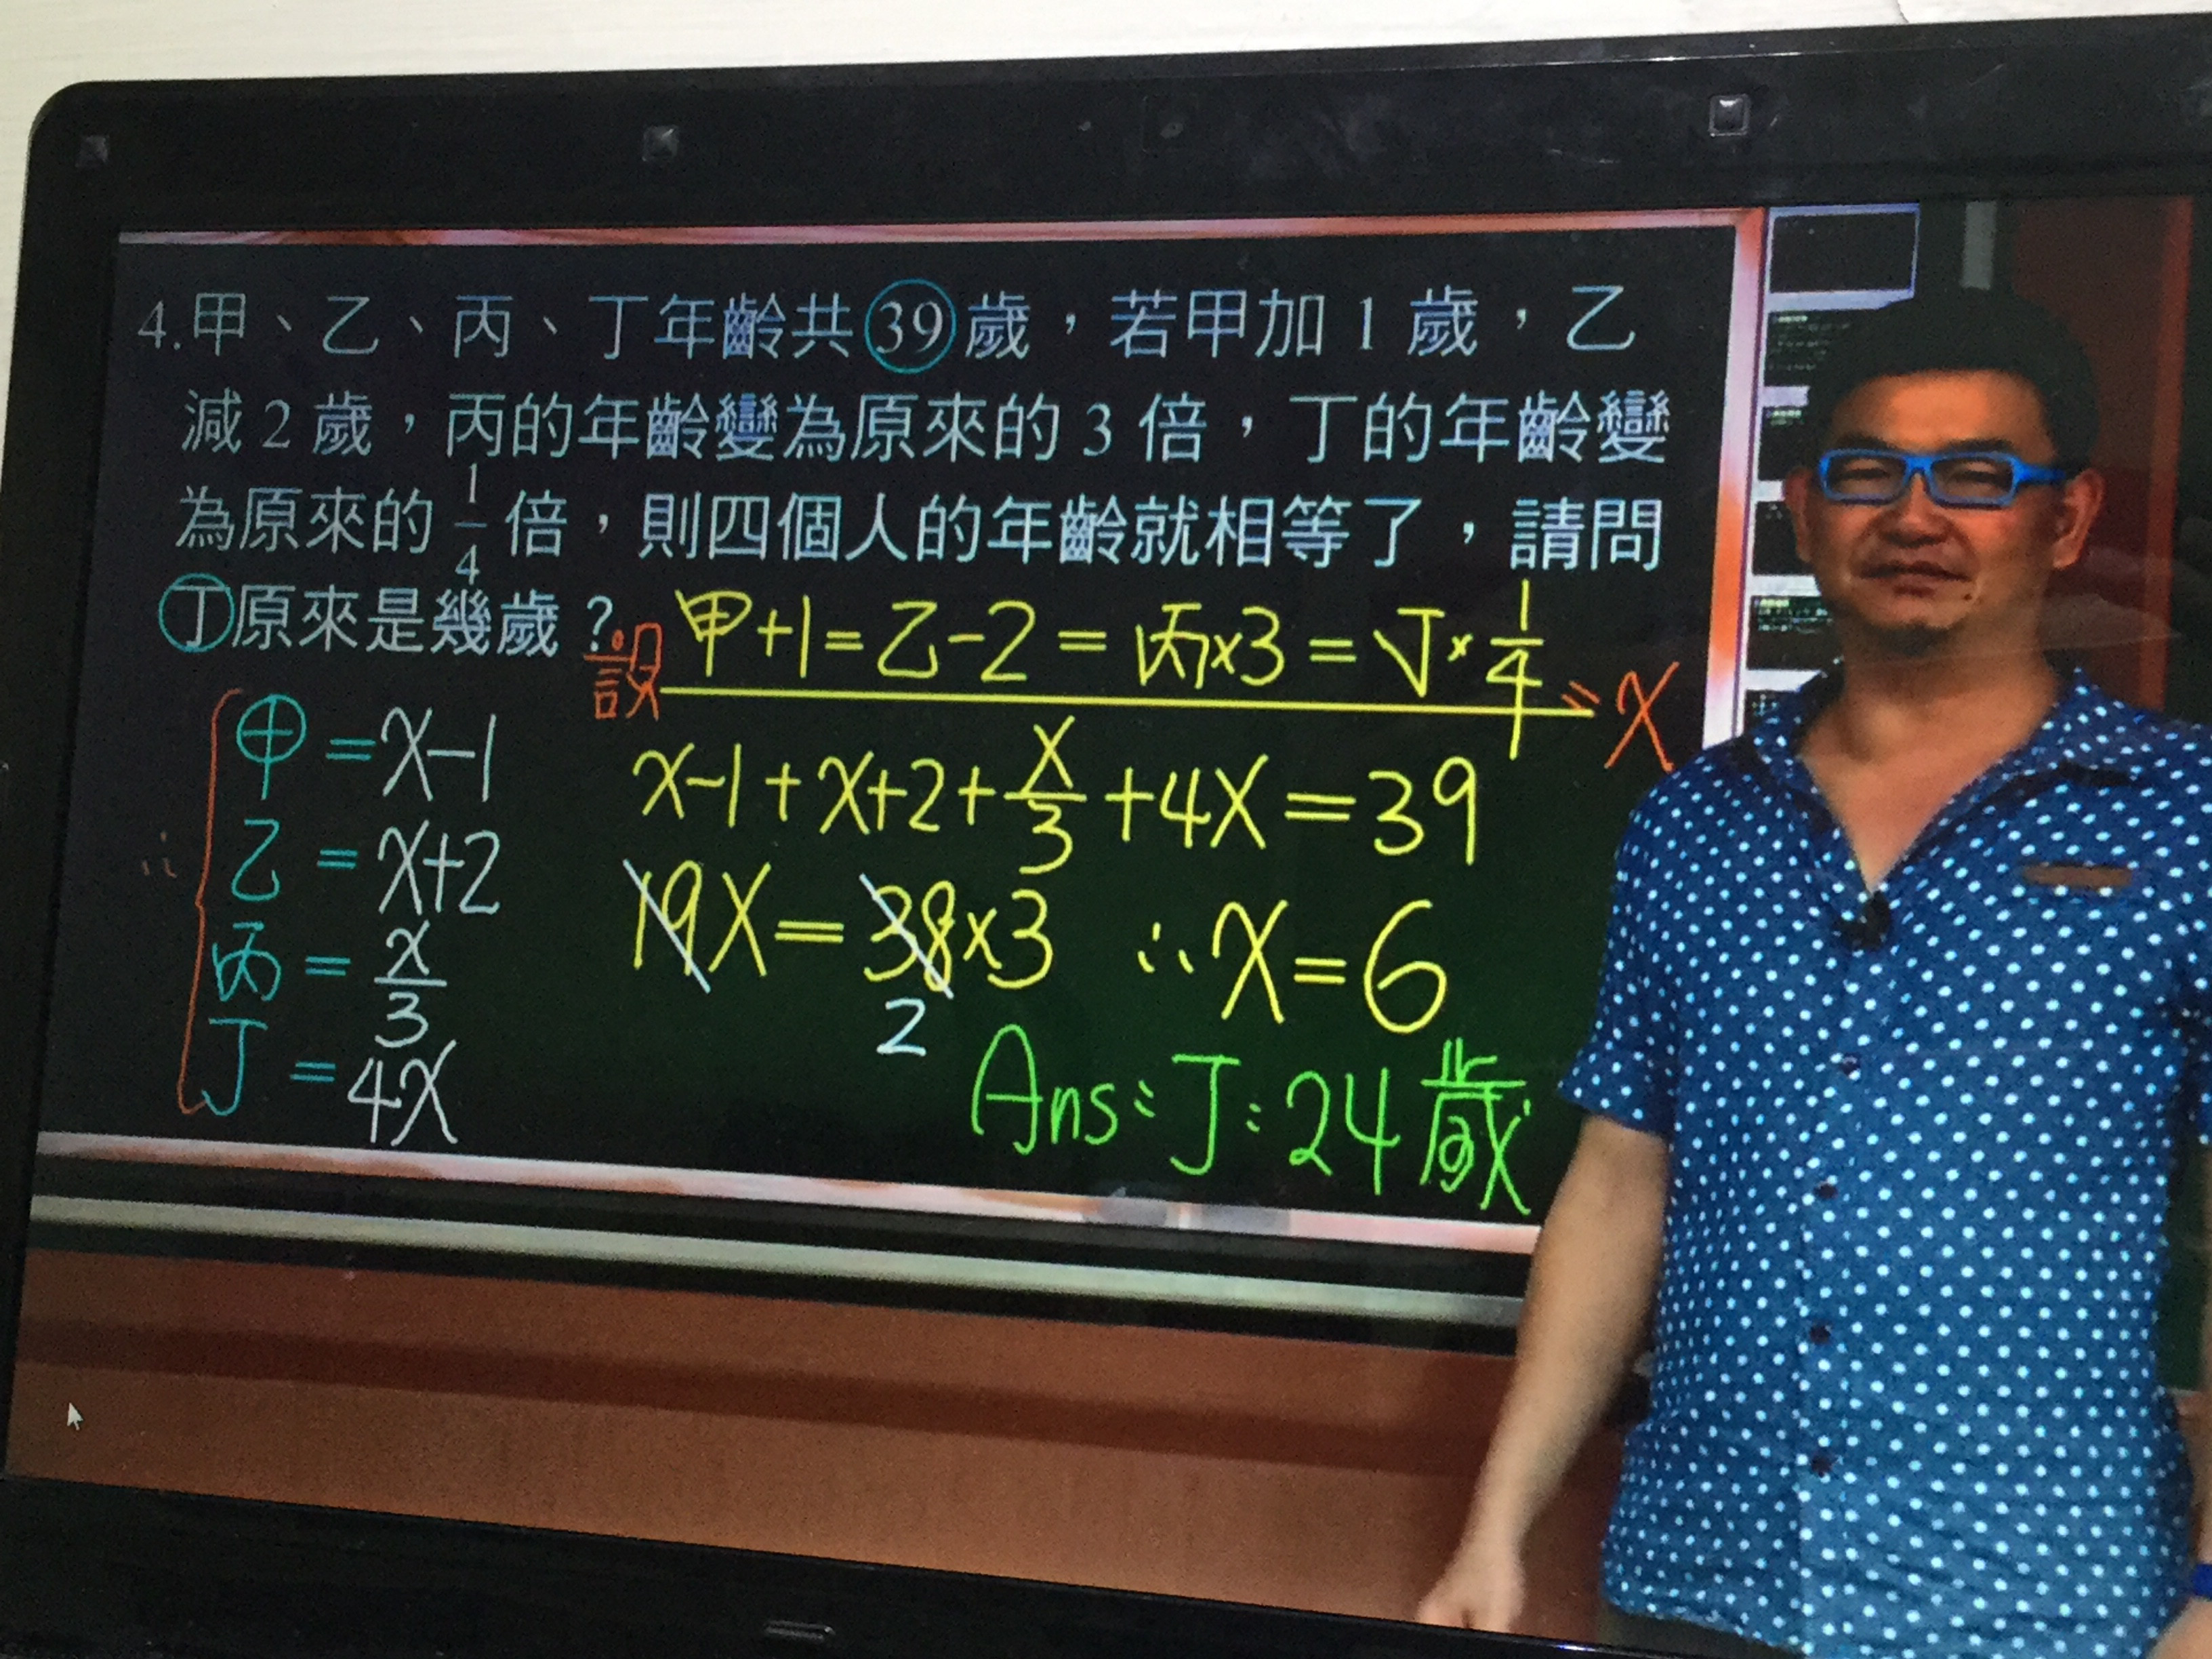 4.甲、乙、丙、丁年齡共39歲，若甲加1歲，乙
減2歲，丙的年齡變為原來的3倍，丁的年齡變
為原來的1/4倍，則四個人的年齡就相等了，請問
丁原來是幾歲？
設 甲+1=乙-2=丙×3=丁×1/4=x
∴
甲=x-1
乙=x+2
丙=x/3
丁=4x
x-1+x+2+x/3+4x=39
19x=38×3 ∴x=6
2
Ans:丁:24歲